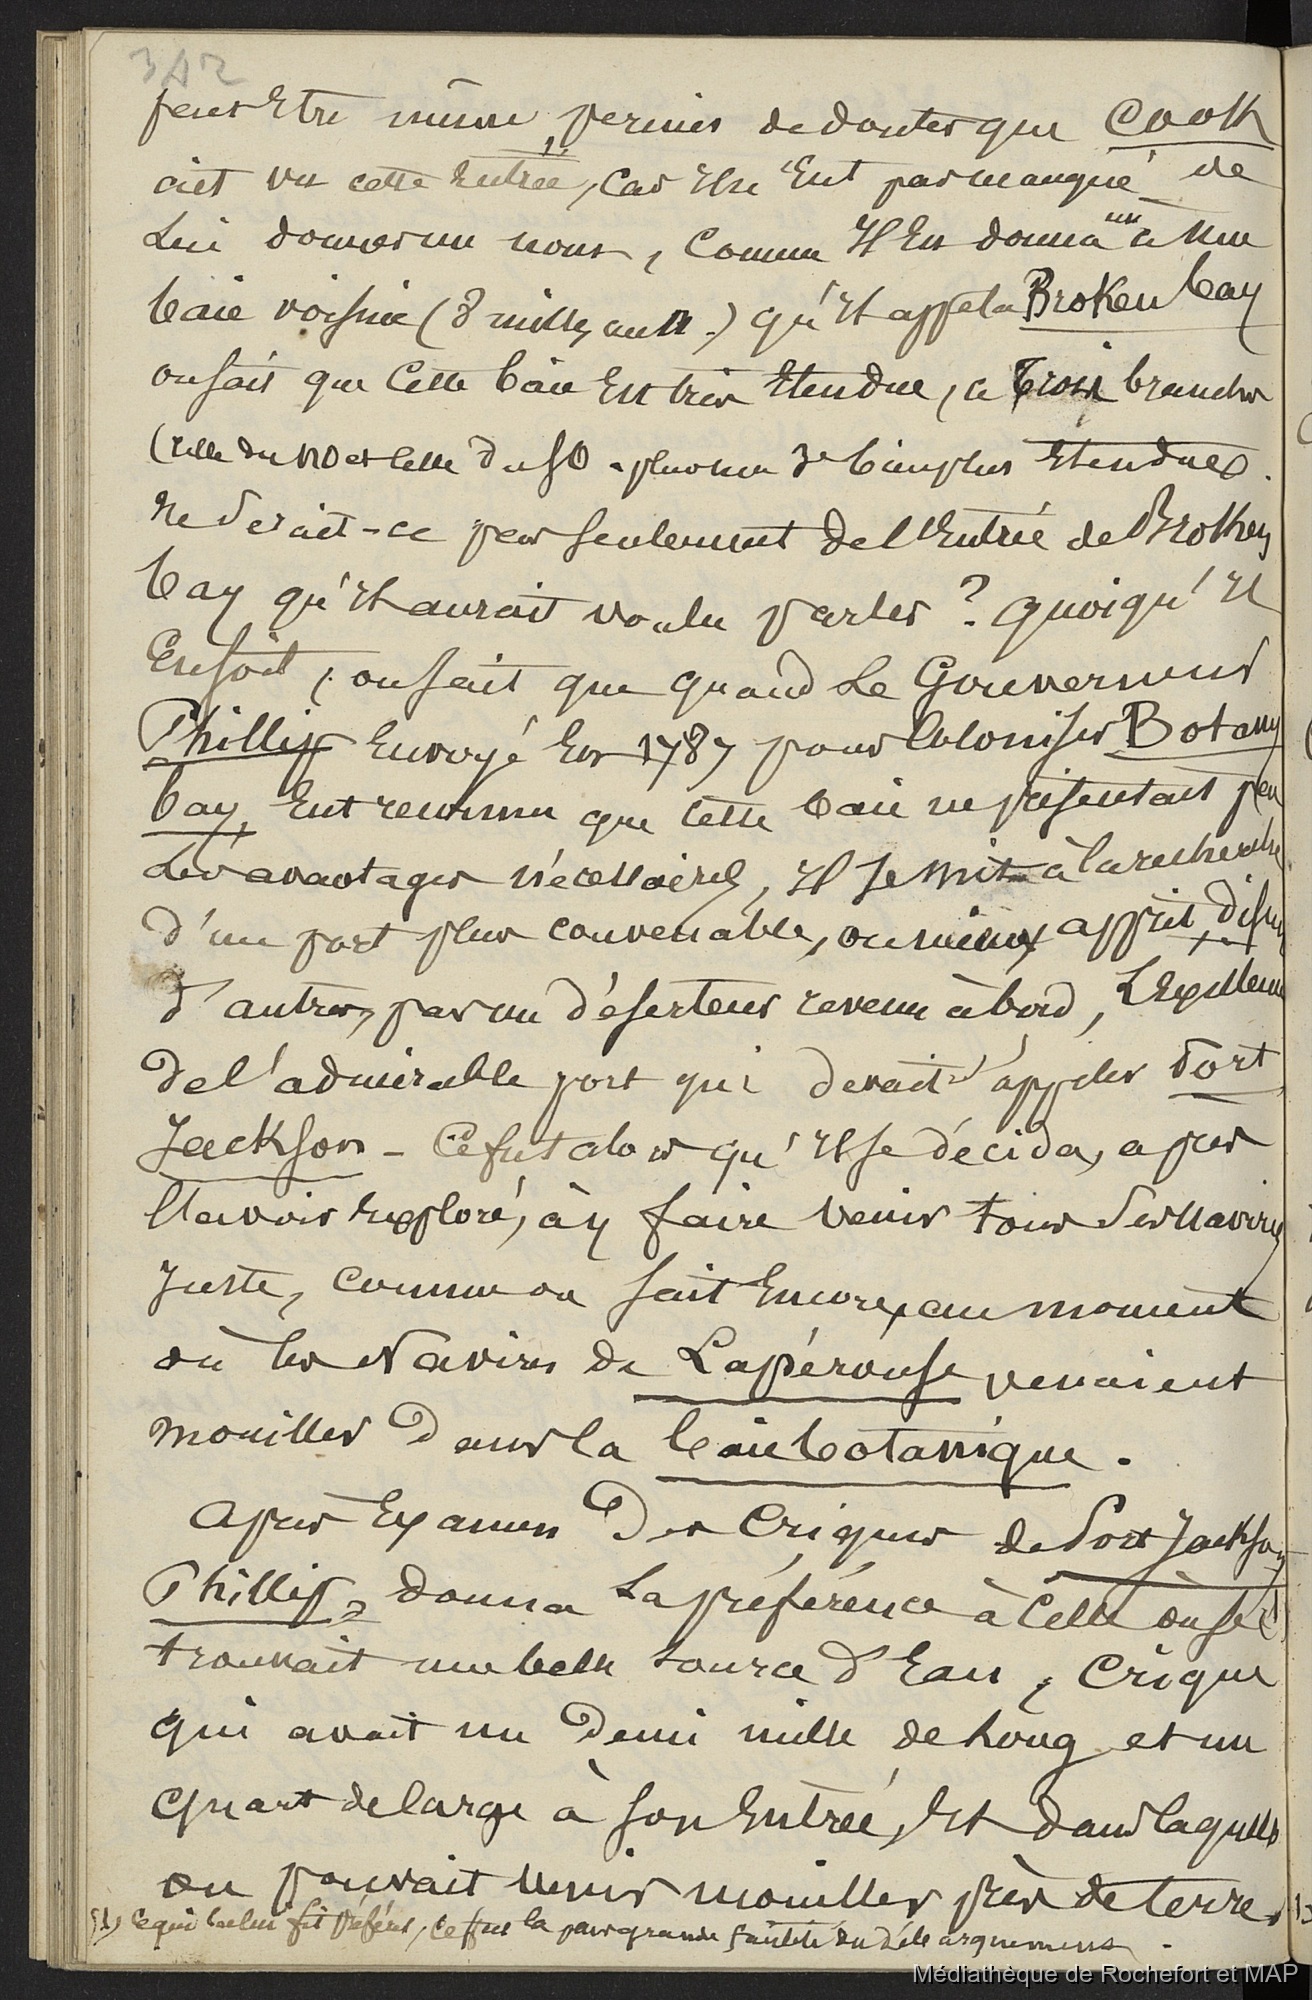 342
peut Etre même permis de douter que Cook
ait vu cette Entrée, Car Il n'Eut pas manqué de
Lui donner un nom, Comme Il En donna un à une
baie voisine (8 milles au N.) qu'Il appela Broken bay
on sait que Cette baie Est très Etendue, a trois branches
(celle du NO et celle du SO Etendues.
Ne serait-ce pas seulement de l'Entrée de Broken
bay qu'Il aurait voulu parler ? quoiqu'Il
En soit, on sait que quand Le Gouverneur
Phillip Envoyé En 1787 pour Coloniser Botany
bay, Eut reconnu que Cette baie ne présentait pas
Les avantages nécessaires, Il se mit à la recherche
d'un port plus convenable, ou mieux apprit, disent
d'autres, par un déserteur revenu à bord, L'Existence
de l'admirable port qui devait s'appeler Port
Jackson - Ce fut alors qu'Il se décida, après
l'avoir Exploré, à y faire venir tous Ses Navires
Juste, comme on sait Encore, au moment
où les Navires de Lapérouse venaient
mouiller Dans la baie botanique.
Après Examen Des Criques de Port Jackson
Phillip, donna La préférence à Celle où se (1)
trouvait une belle source d'Eau, Crique
qui avait un Demi mille de Long et un
Quart de large à son Entrée, Et dans laquelle
on pouvait venir mouiller près de terre,
(1) Ce qui la lui fit préférer, ce fut la plus grande facilité du débarquement.
Médiathèque de Rochefort et MAP